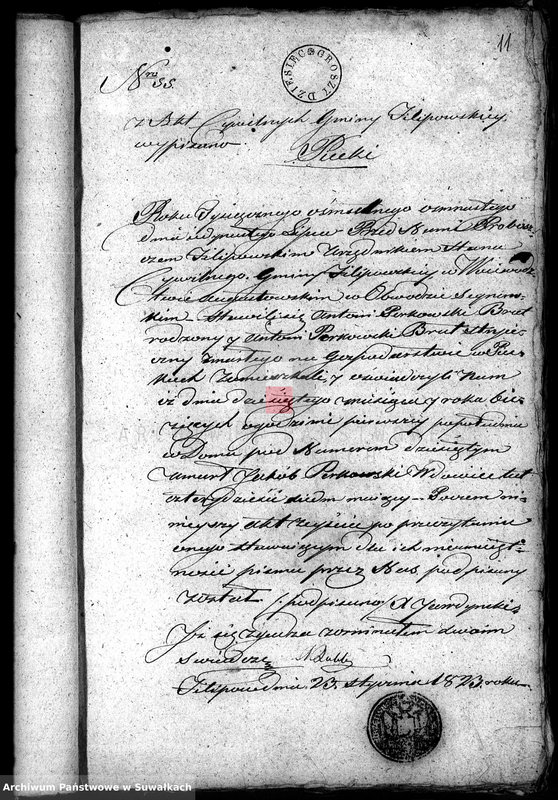 11
Nro 55.
DZIESIĘC GROSZY
z Akt Cywilnych Gminy Filipowskiey
wypisano
Piecki
Roku Tysiącznego ośmsetnego ośmnastego
dnia Lipca Przed Nami Probosz
czem Filipowskim Urzędnikiem Stanu
Cywilnego Gminy Filipowskiey w Woiewodz
twie Augustowskim w Obwodzie Seyneń
skim Stawili się Antoni Perkowski Brat
rodzony y Antoni Perkowski Brat stryie
czny zmarłego na Gospodarstwie w Piec
kach zamieszkali, y oświadczyli Nam
iż dnia dziesiętego miesiąca y roku bie
żących o godzinie pierwszy popołudniu
w Domu pod Numerem dziesiątym
umarł Jakób Perkowski Wdowiec lat
czterdzieści siedm maiący. Poczem ni
nieyszy Akt po przeczytaniu
onego stawaiącym dla ich nieumieięt
ności pisma przez Nas podpisany
został /podpisano/ X
Iż się zgadza
świadczę
Filipow dnia 23 stycznia 1823 roku
Archiwum Państwowe w Suwałkach